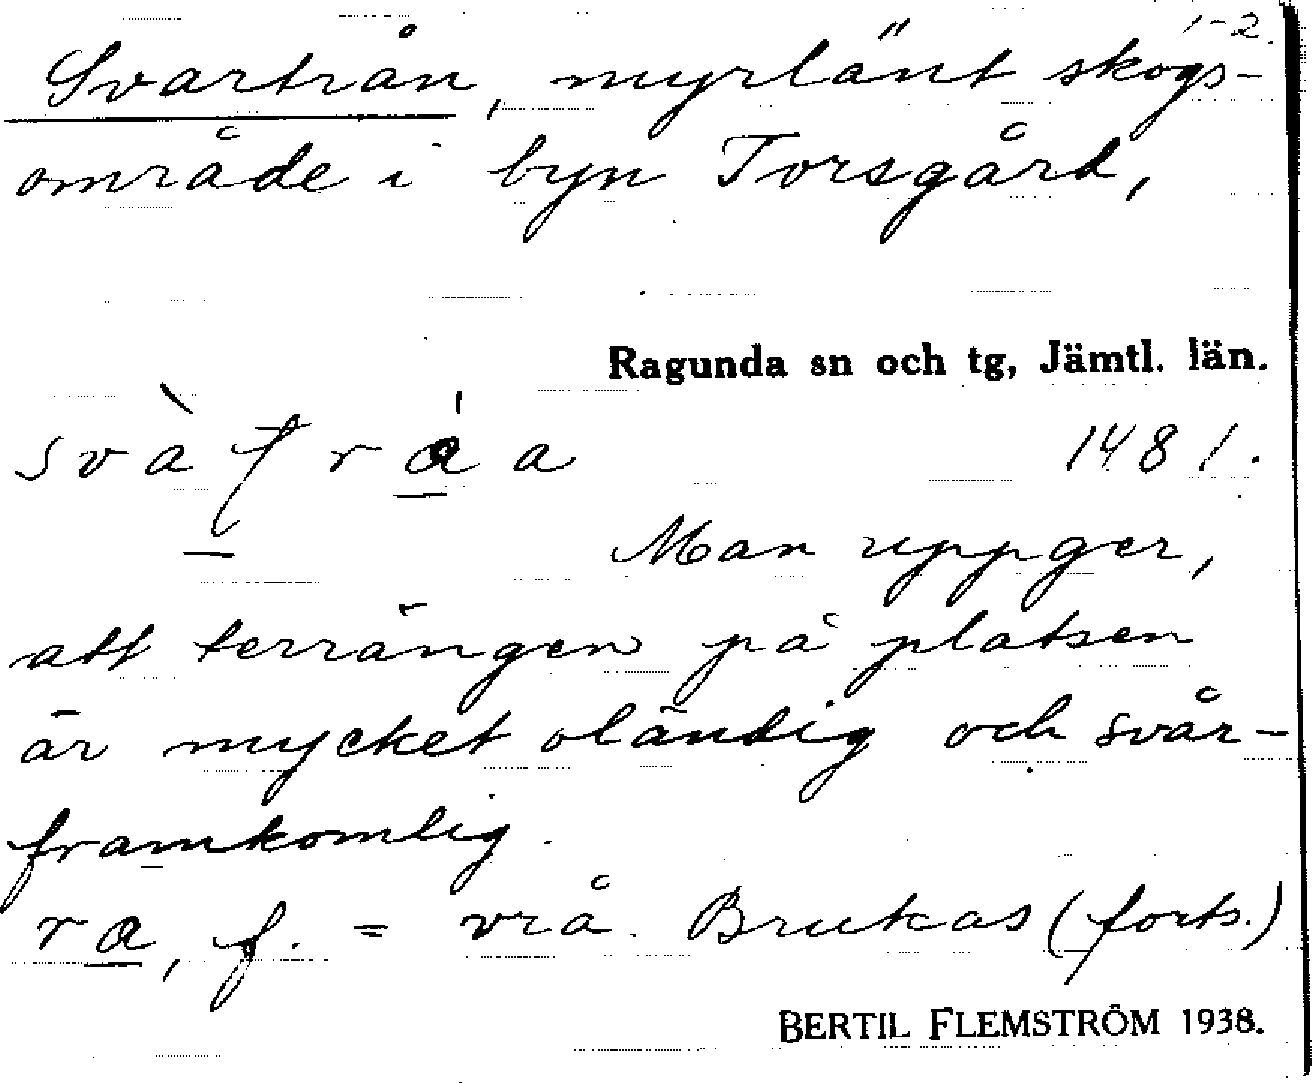 1-2.
Svartrån, myrlänt skogs-
område i byn Torsgård,
Ragunda sn och tg, Jämtl. län.
1481.
Man uppger,
att terrängen på platsen
är mycket oländig och svår-
framkomlig.
ra, f. = vrå. Brukas (forts.)
BERTIL FLEMSTRÖM 1938.